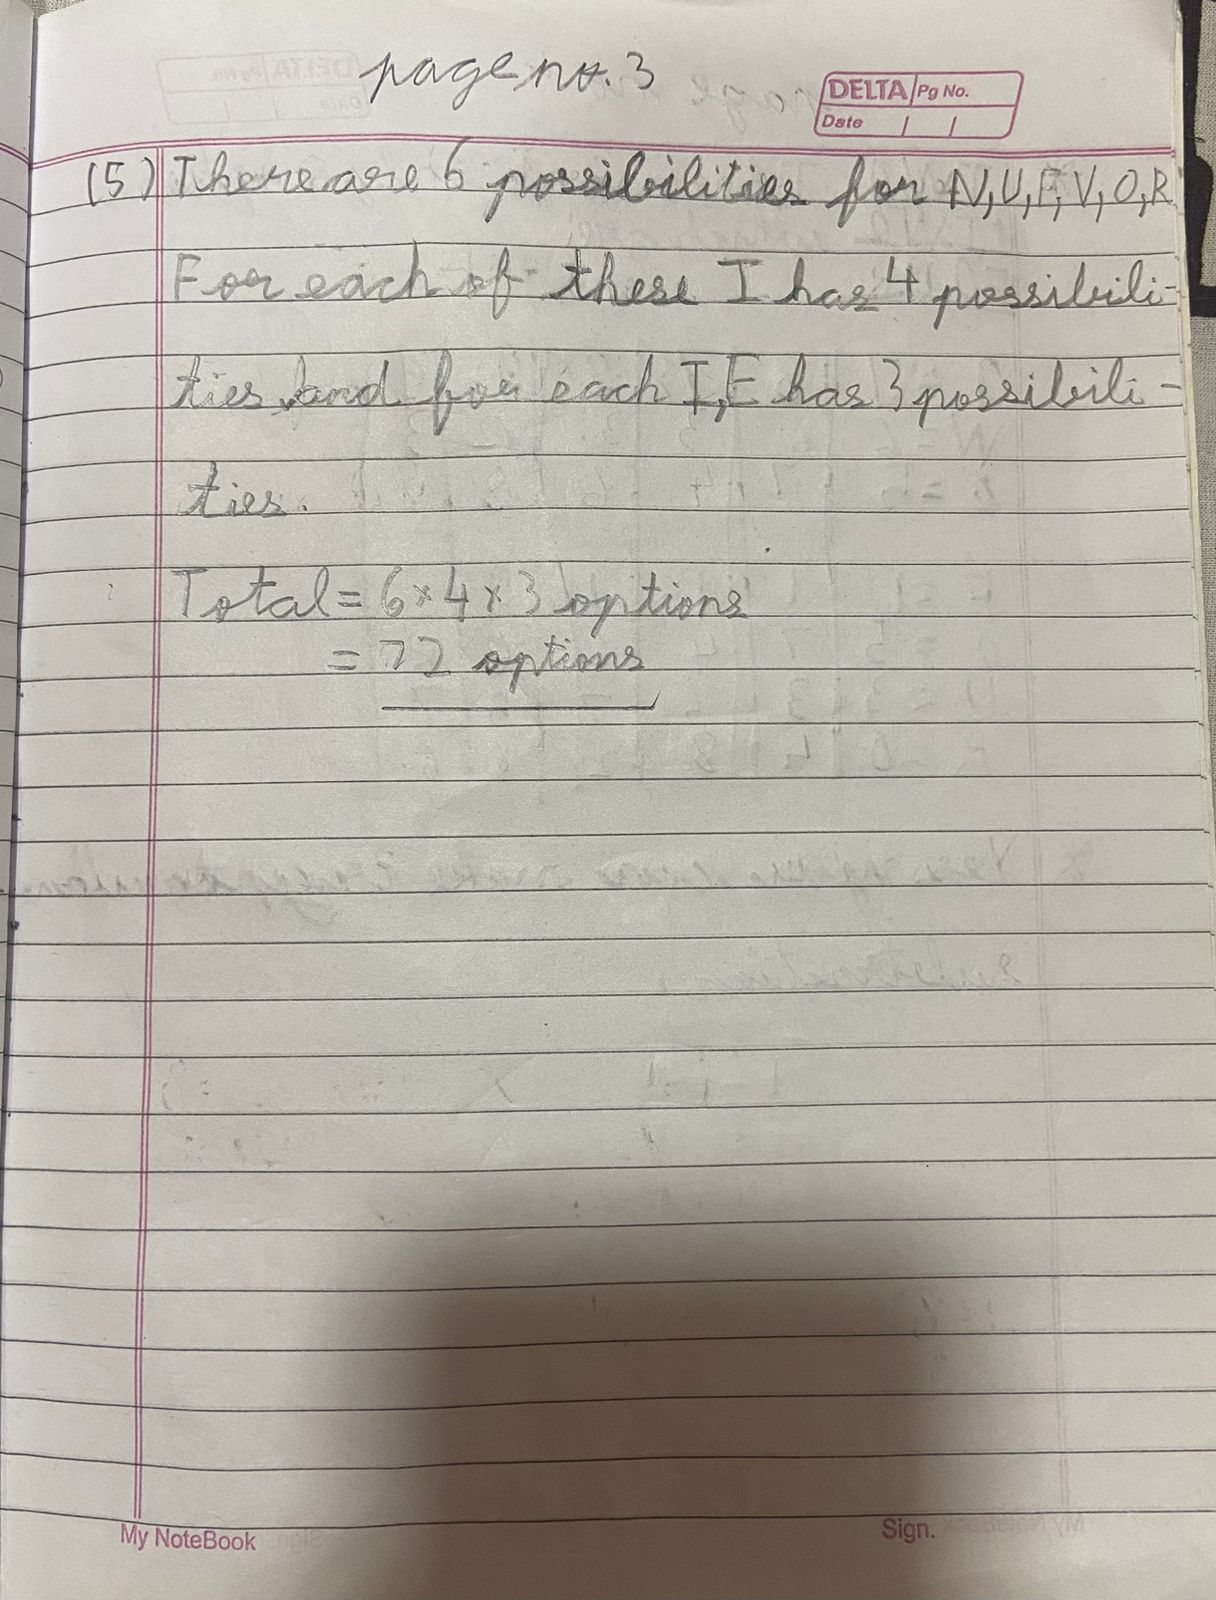 page no. 3
DELTA Pg No.
Date / /
(5) There are 6 possibilities for N,U,F,V,O,R
For each of these I has 4 possibili-
ties, and for each I,E has 3 possibili-
ties.
Total = 6×4×3 options
= 72 options
My NoteBook
Sign.